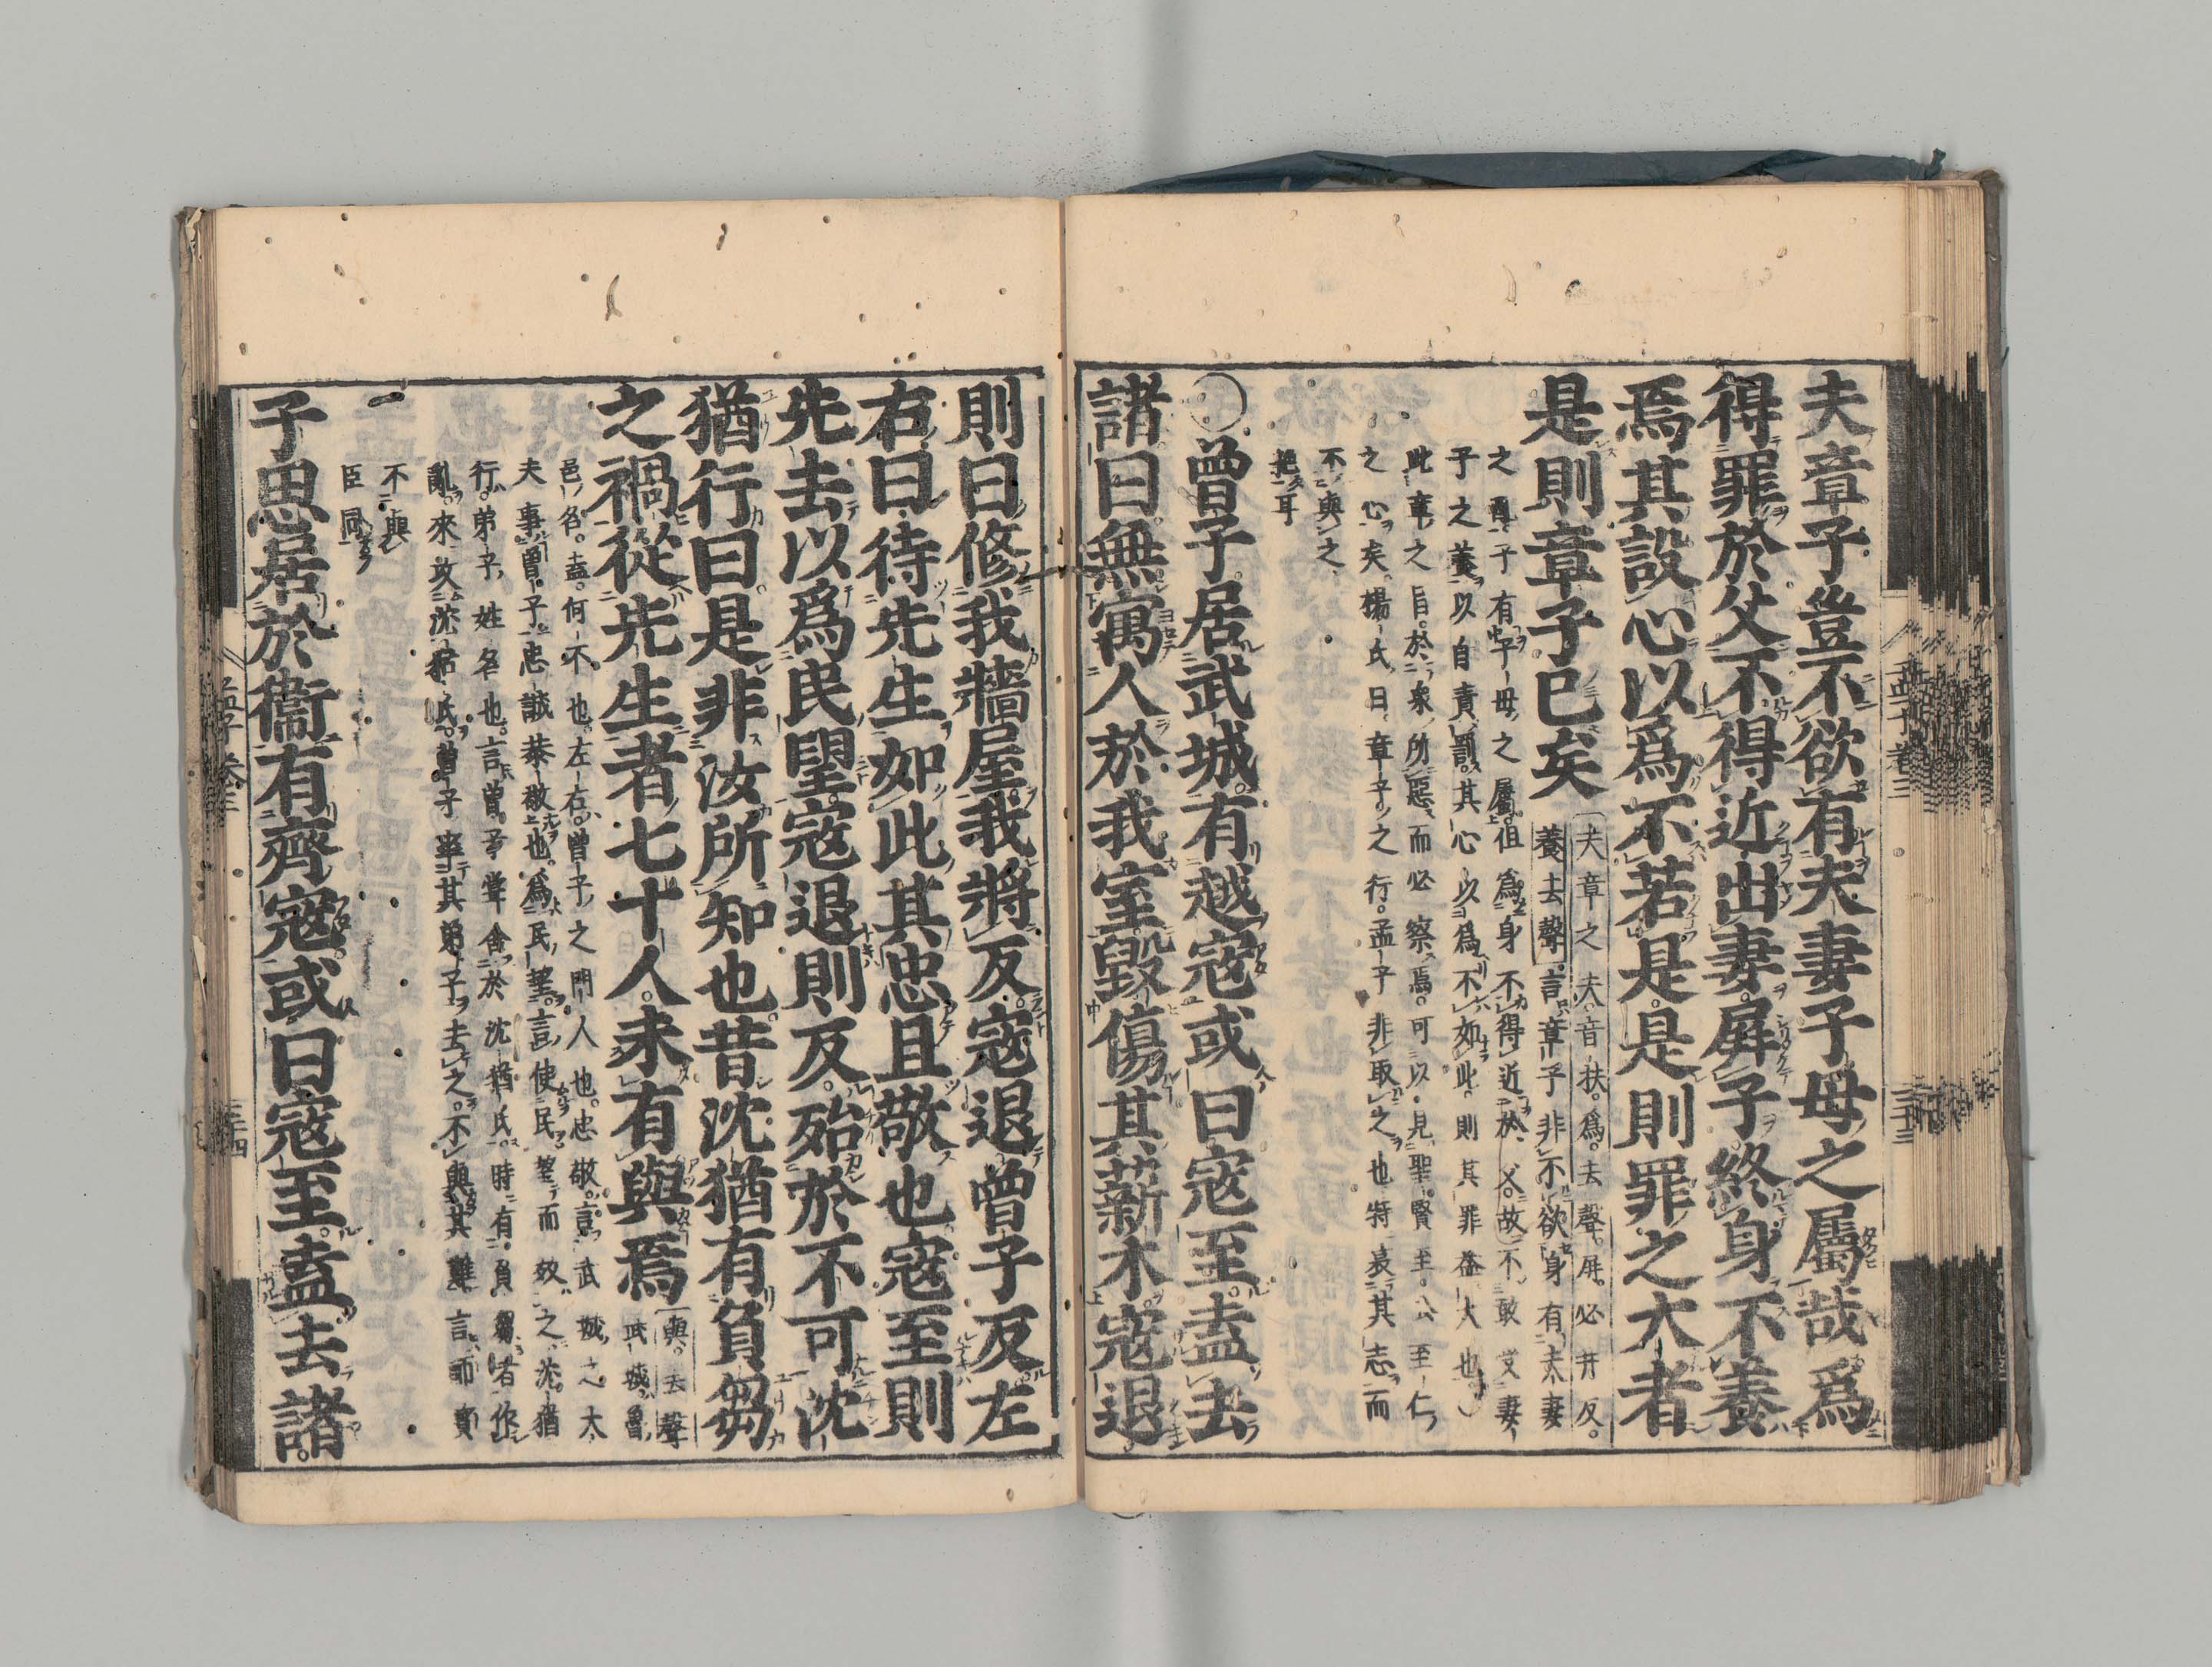 夫章子豈不欲有夫妻子母之屬哉爲
得罪於父不得近出妻屏子終身不養
焉其設心以爲不若是是則罪之大者
是則章子已矣
夫章之夫音扶爲去聲屏必井反
養去聲言章子非不欲身有夫妻
之配子有子母之屬但爲身不得近於父故不敢受妻
子之養以自責罰其心以爲不如此則其罪益大也
此章之旨於衆所惡而必察焉可以見聖賢至公至仁
之心矣楊氏曰章子之行孟子非取之也特哀其志而
不與之
絶耳
○曾子居武城有越寇或曰寇至盍去
諸曰無寓人於我室毀傷其薪木寇退
則曰修我牆屋我將反寇退曾子反左
右曰待先生如此其忠且敬也寇至則
先去以爲民望寇退則反殆於不可沈
猶行曰是非汝所知也昔沈猶有負芻
之禍從先生者七十人未有與焉
與去聲
武城魯
邑名盍何不也左右曾子之門人也忠敬言武城之大
夫事曾子忠誠恭敬也爲民望言使民望而效之沈猶
行弟子姓名也言曾子嘗舍於沈猶氏時有負芻者作
亂來攻沈猶氏曾子率其弟子去之不與其難言師賓
不與
臣同
子思居於衞有齊寇或曰寇至盍去諸
孟子卷三
三十三
孟子卷三
三十四